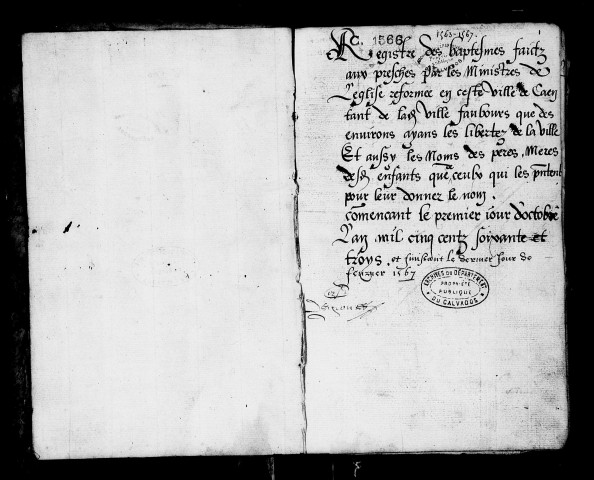 1566
1563-1567.
Registre des baptesmes faictz
aux presches par les Ministres de
l'eglise reformee en ceste ville de Caen
tant de lad ville faubours que des
environs ayans les libertez de la ville
Et aussy les Noms des peres, Meres
desd enfants que de ceulx qui les pntent
pour leur donner le nom.
comencant le premier iour d'octobre
L'an mil cinq centz soixante et
troys. et finissant le dernier Jour de
1567
ARCHIVES DU DÉPARTEMENT
PROPRIÉTÉ
PUBLIQUE
DU CALVADOS